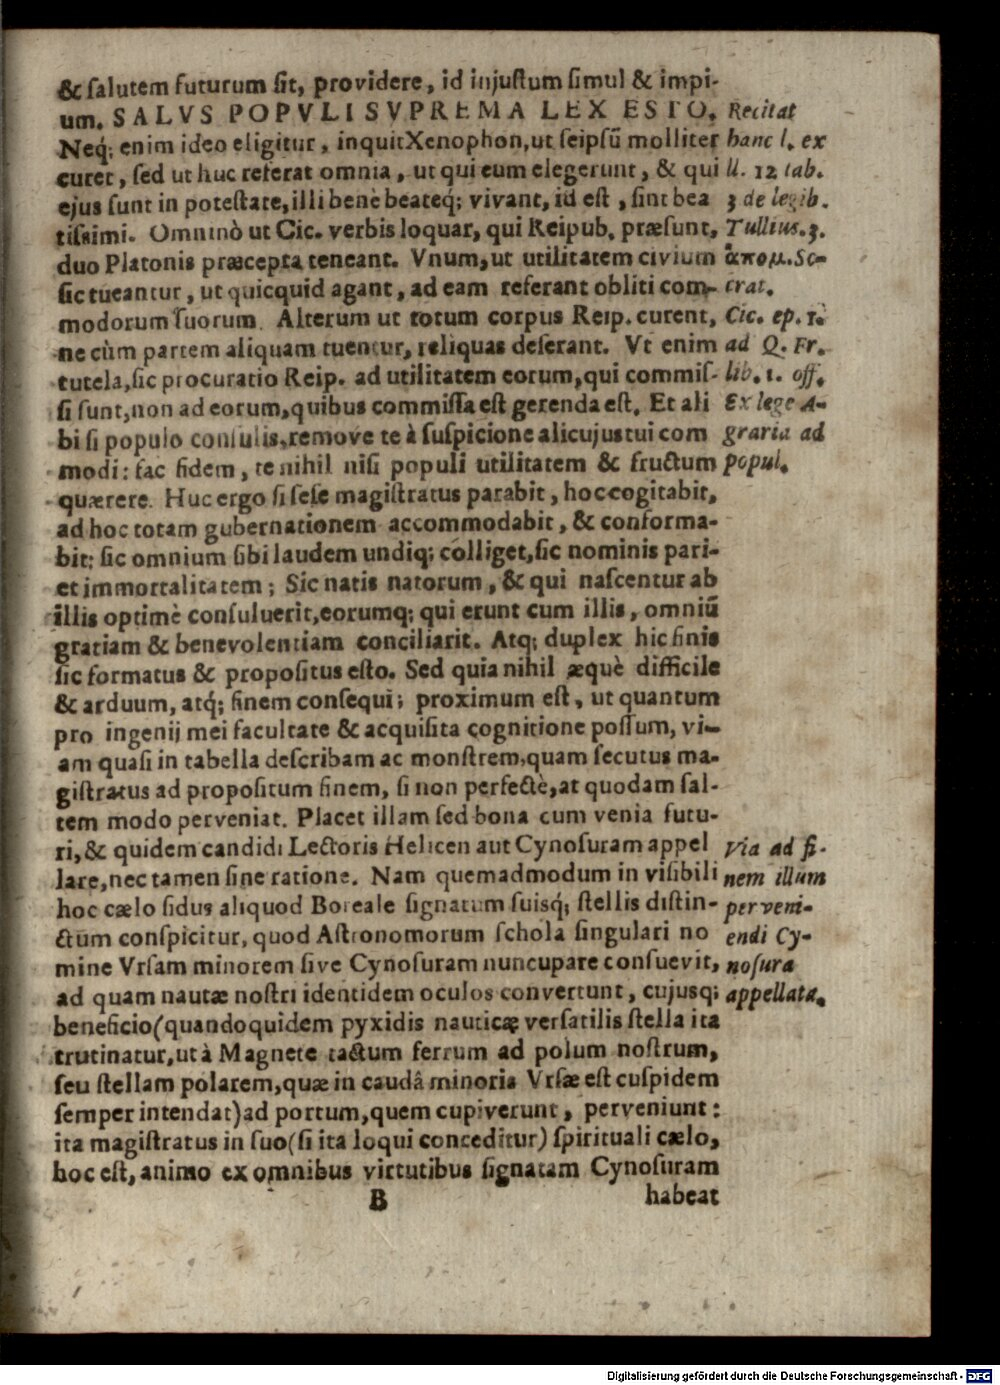 & ſalutem futurum ſit, providere, id injuſtum ſimul & impi-
um. SALVS POPVLI SVPREMA LEX ESTO.
Neq́; enim ideo eligitur, inquit Xenophon, ut ſeipſū molliter
curet, ſed ut huc referat omnia, ut qui eum elegerunt, & qui
ejus ſunt in poteſtate, illi benè beateq́; vivant, id eſt, ſint bea
tiſsimi. Omninò ut Cic. verbis loquar, qui Reipub. præſunt,
duo Platonis præcepta teneant. Vnum, ut utilitatem civium
ſic tueantur, ut quicquid agant, ad eam referant obliti com-
modorum ſuorum. Alterum ut totum corpus Reip. curent,
ne cùm partem aliquam tuentur, reliquas deſerant. Vt enim
tutela, ſic procuratio Reip. ad utilitatem eorum, qui commiſ-
ſi ſunt, non ad eorum, quibus commiſſa eſt gerenda eſt. Et ali
bi ſi populo conſulis, remove te à ſuſpicione alicujus tui com
modi: fac fidem, te nihil niſi populi utilitatem & fructum
quærere. Huc ergo ſi ſeſe magiſtratus parabit, hoc cogitabit,
ad hoc totam gubernationem accommodabit, & conforma-
bit: ſic omnium ſibi laudem undiq; colliget, ſic nominis pari-
et immortalitatem; Sic natis natorum, & qui naſcentur ab
illis optimè conſuluerit, eorumq; qui erunt cum illis, omniū
gratiam & benevolentiam conciliarit. Atq; duplex hic finis
ſic formatus & propoſitus eſto. Sed quia nihil æquè difficile
& arduum, atq́; finem conſequi; proximum eſt, ut quantum
pro ingenij mei facultate & acquiſita cognitione poſſum, vi-
am quaſi in tabella deſcribam ac monſtrem, quam ſecutus ma-
giſtratus ad propoſitum finem, ſi non perfectè, at quodam ſal-
tem modo perveniat. Placet illam ſed bona cum venia futu-
ri, & quidem candidi Lectoris Helicen aut Cynoſuram appel
lare, nec tamen ſine ratione. Nam quemadmodum in viſibili
hoc cælo ſidus aliquod Boreale ſignatum ſuisq́; ſtellis diſtin-
ctum conſpicitur, quod Aſtronomorum ſchola ſingulari no
mine Vrſam minorem ſive Cynoſuram nuncupare conſuevit,
ad quam nautæ noſtri identidem oculos convertunt, cujusq;
beneficio (quandoquidem pyxidis nauticæ verſatilis ſtella ita
trutinatur, ut à Magnete tactum ferrum ad polum noſtrum,
ſeu ſtellam polarem, quæ in caudâ minoris Vrſæ eſt cuſpidem
ſemper intendat) ad portum, quem cupiverunt, perveniunt:
ita magiſtratus in ſuo (ſi ita loqui conceditur) ſpirituali cælo,
hoc eſt, animo ex omnibus virtutibus ſignatam Cynoſuram
B
habeat
Recitat
hanc l. ex
ll. 12 tab.
3 de legib.
Tullius. 3.
ἀπομ. So-
crat.
Cic. ep. 1.
ad Q. Fr.
lib. 1. off.
Ex lege A-
graria ad
popul.
Via ad fi-
nem illum
perveni-
endi Cy-
noſura
appellata.
Digitalisierung gefördert durch die Deutsche Forschungsgemeinschaft - DFG